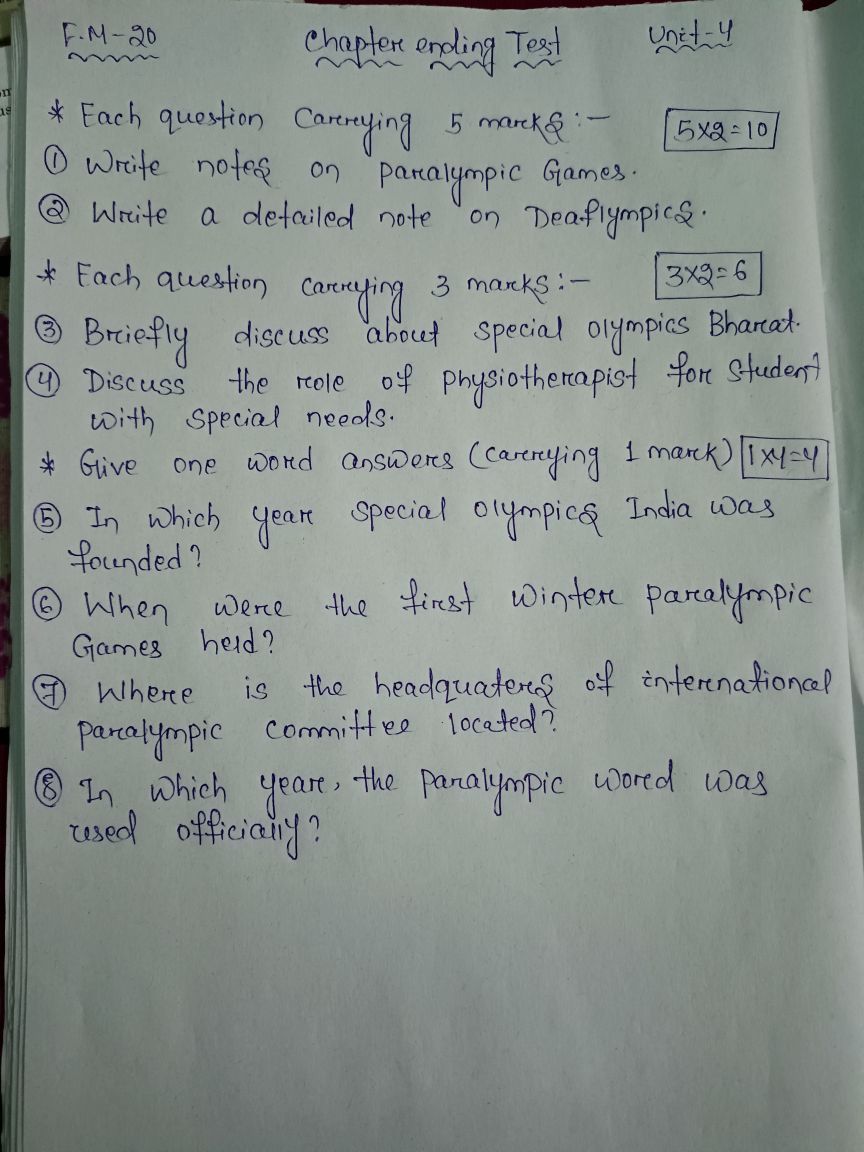 F.M-20 Chapter ending Test Unit-4
* Each question Carrying 5 marks:-  5x2=10
① Write notes on Paralympic Games.
② Write a detailed note on Deaflympics.
* Each question carrying 3 marks:-  3x2=6
③ Briefly discuss about special olympics Bharat.
④ Discuss the role of physiotherapist for student
with special needs.
* Give one word answers (carrying 1 mark) 1x4=4
⑤ In which year special olympics India was
founded?
⑥ When were the first winter paralympic
Games held?
⑦ Where is the headquaters of international
paralympic committee located?
⑧ In which year, the paralympic word was
used officially?